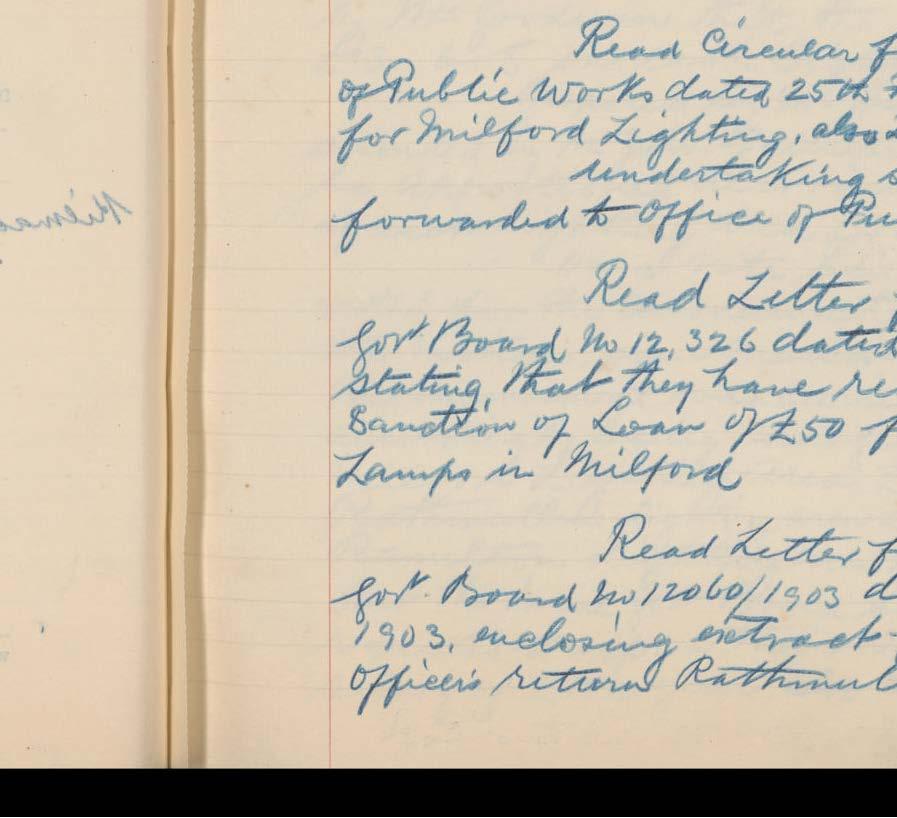 Read Circular f
of Public Works dated 25th
for Milford Lighting, also
undertaking s
forwarded to Office of Pu
Read Letter f
Govt Board No 12,326 dated
stating, that they have re
Sanction of Loan of £50 f
Lamps in Milford
Read Letter f
Govt. Board No 12060/1903 d
1903, enclosing extract
Officer's return Rathmul